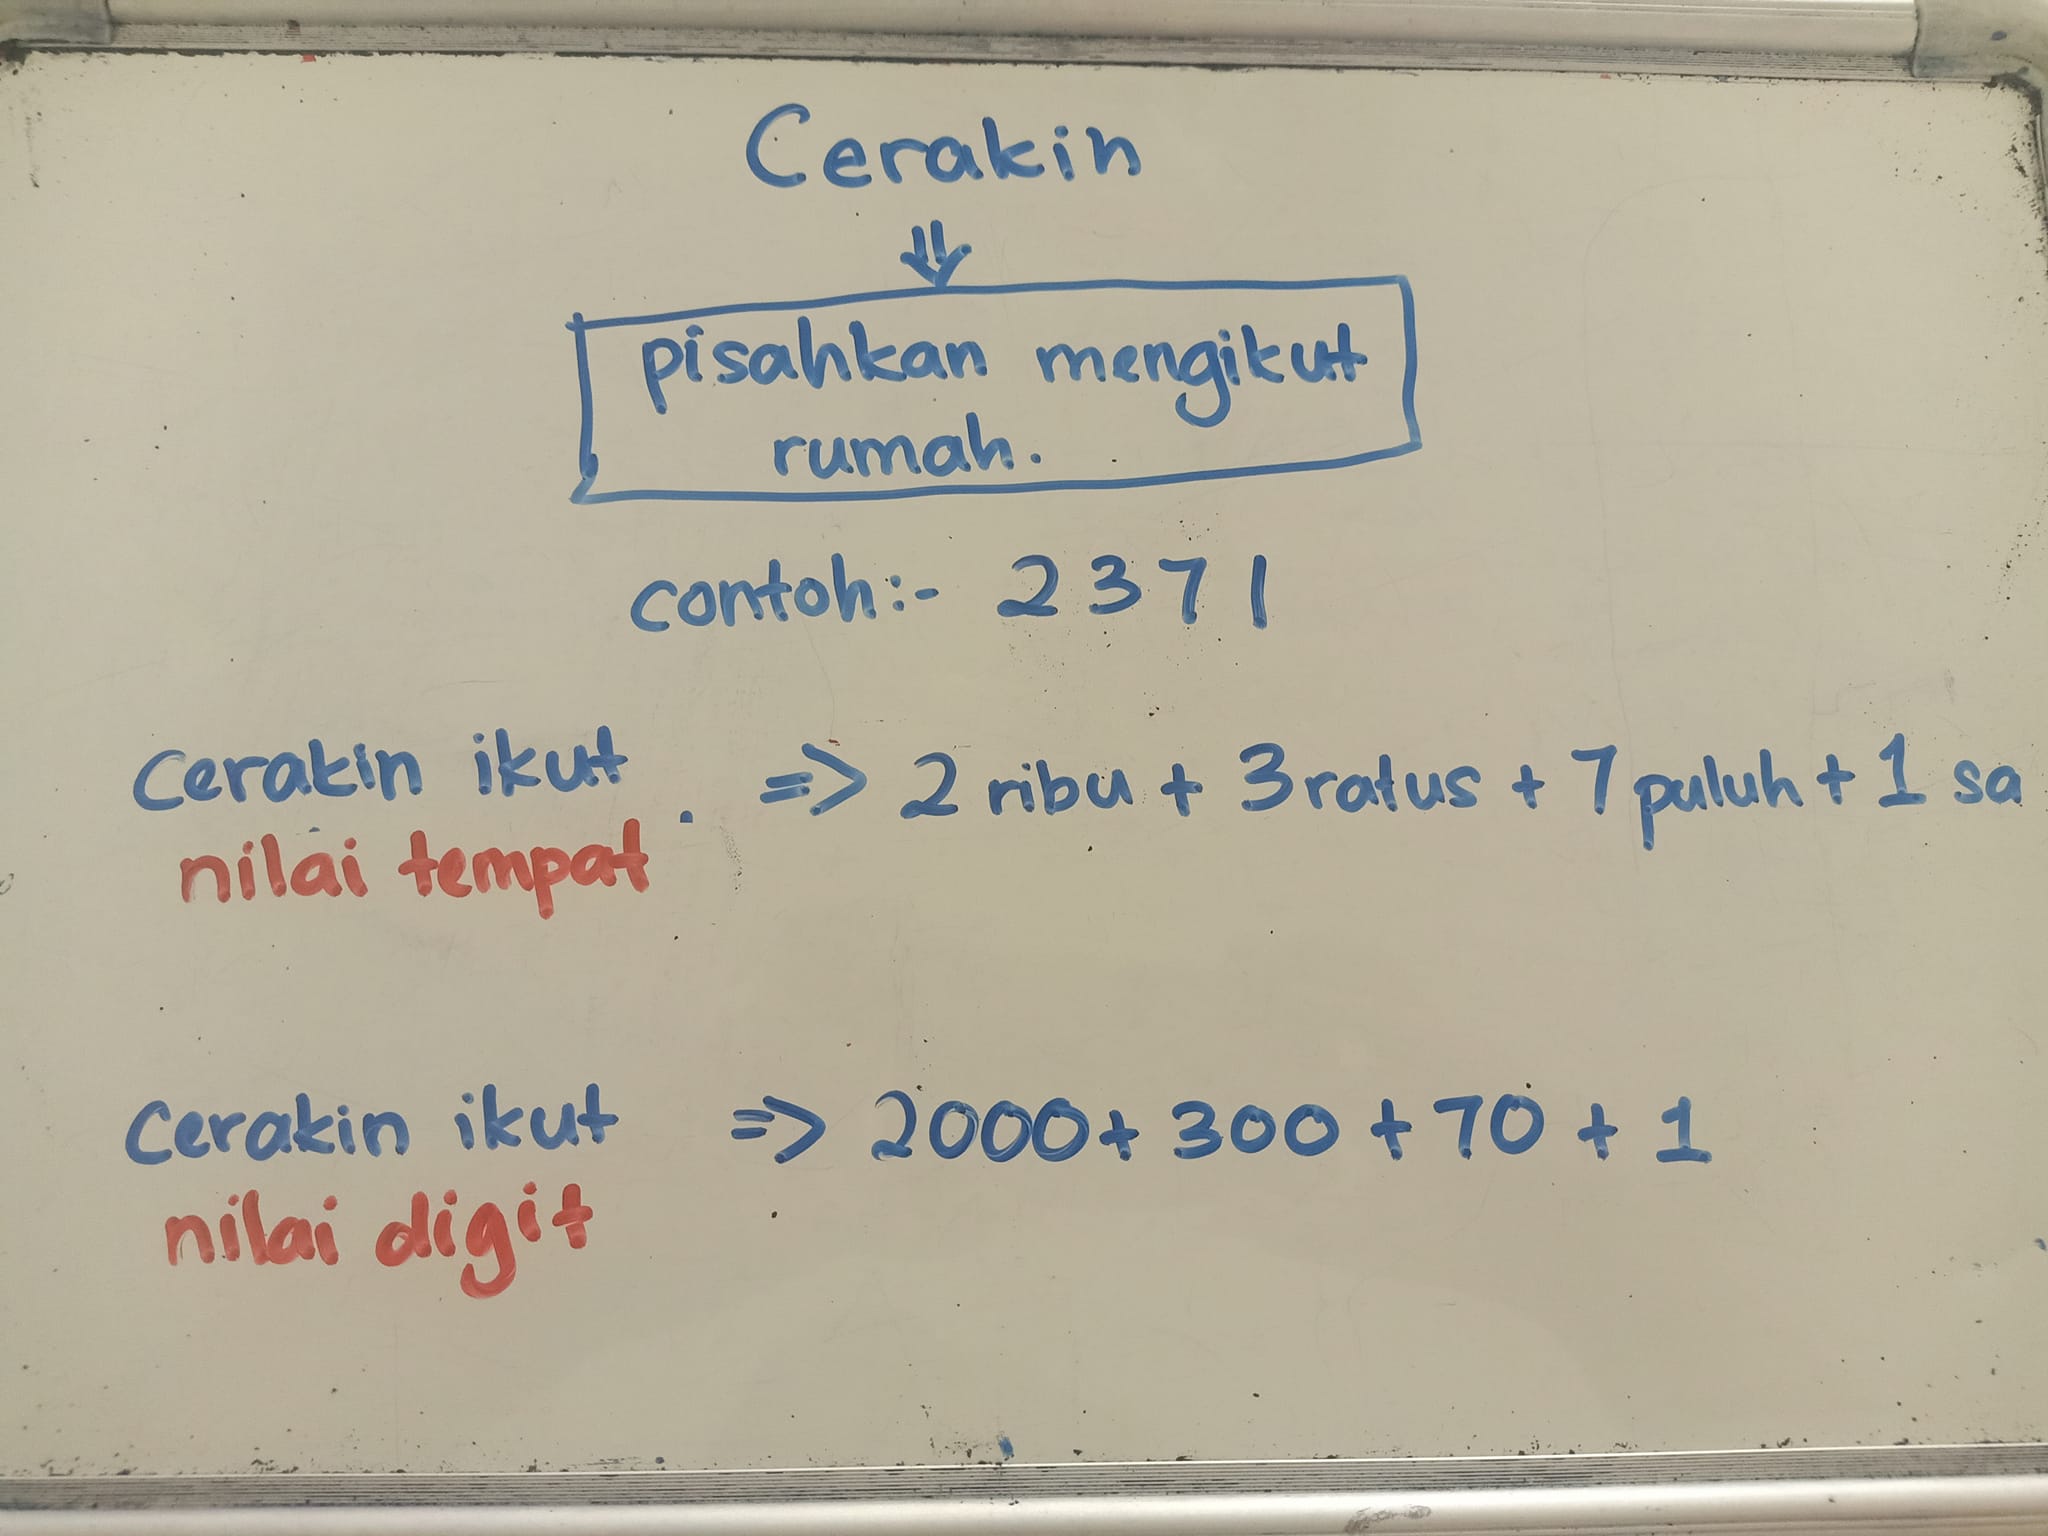 Cerakin
⇓
pisahkan mengikut
rumah.
contoh:- 2371
Cerakin ikut => 2 ribu + 3 ratus + 7 puluh + 1 sa
nilai tempat
Cerakin ikut => 2000 + 300 + 70 + 1
nilai digit